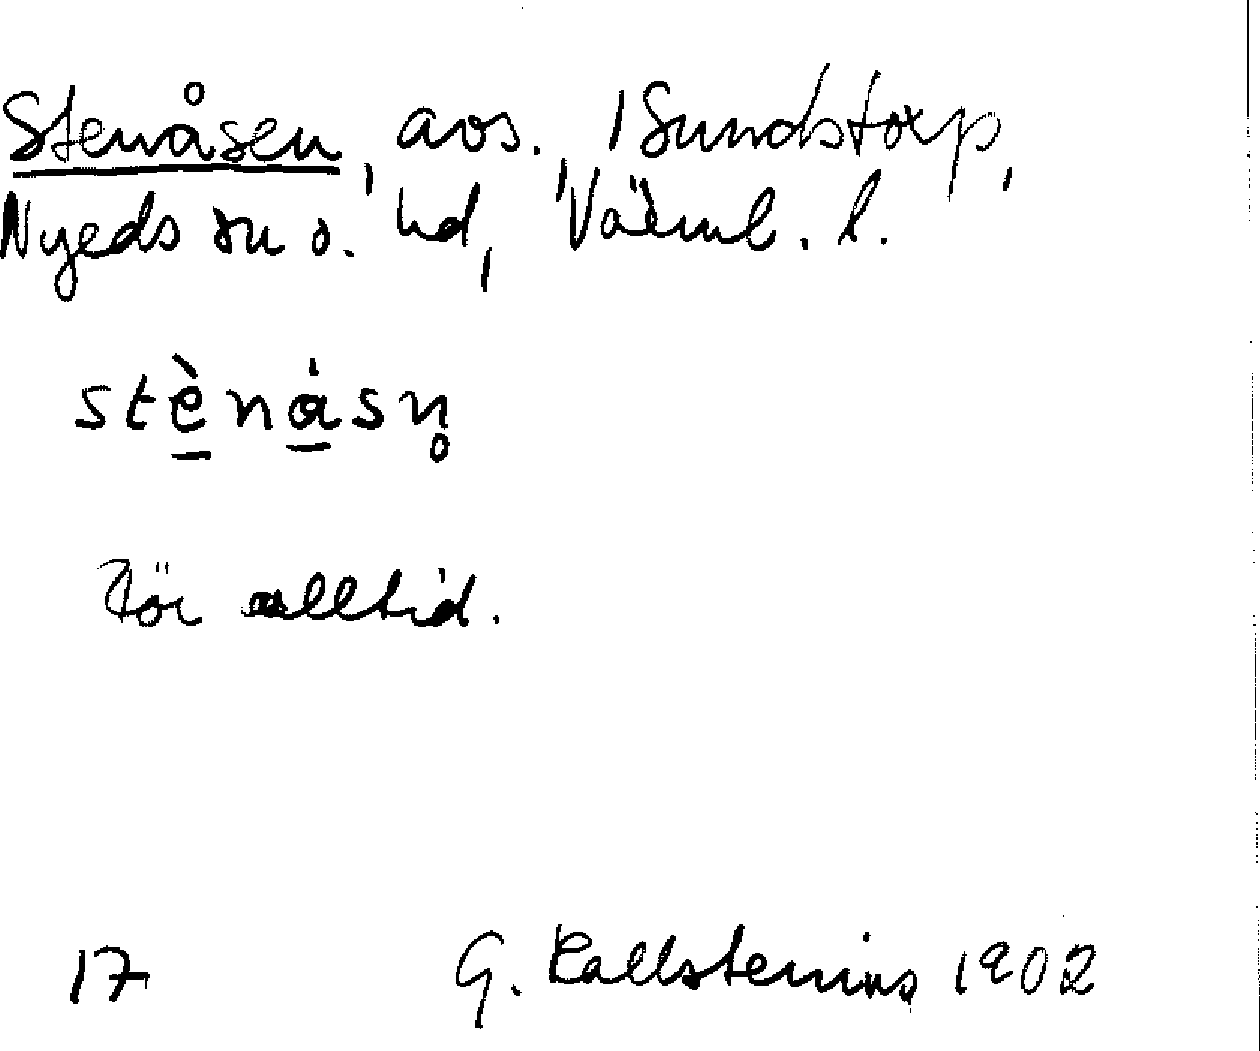 Stenåsen, avs., 1 Sundstorp,
Nyeds sn o. hd, Värml. l.
stè̱ná̱sn̥
För alltid.
17 G. Kallstenius 1902